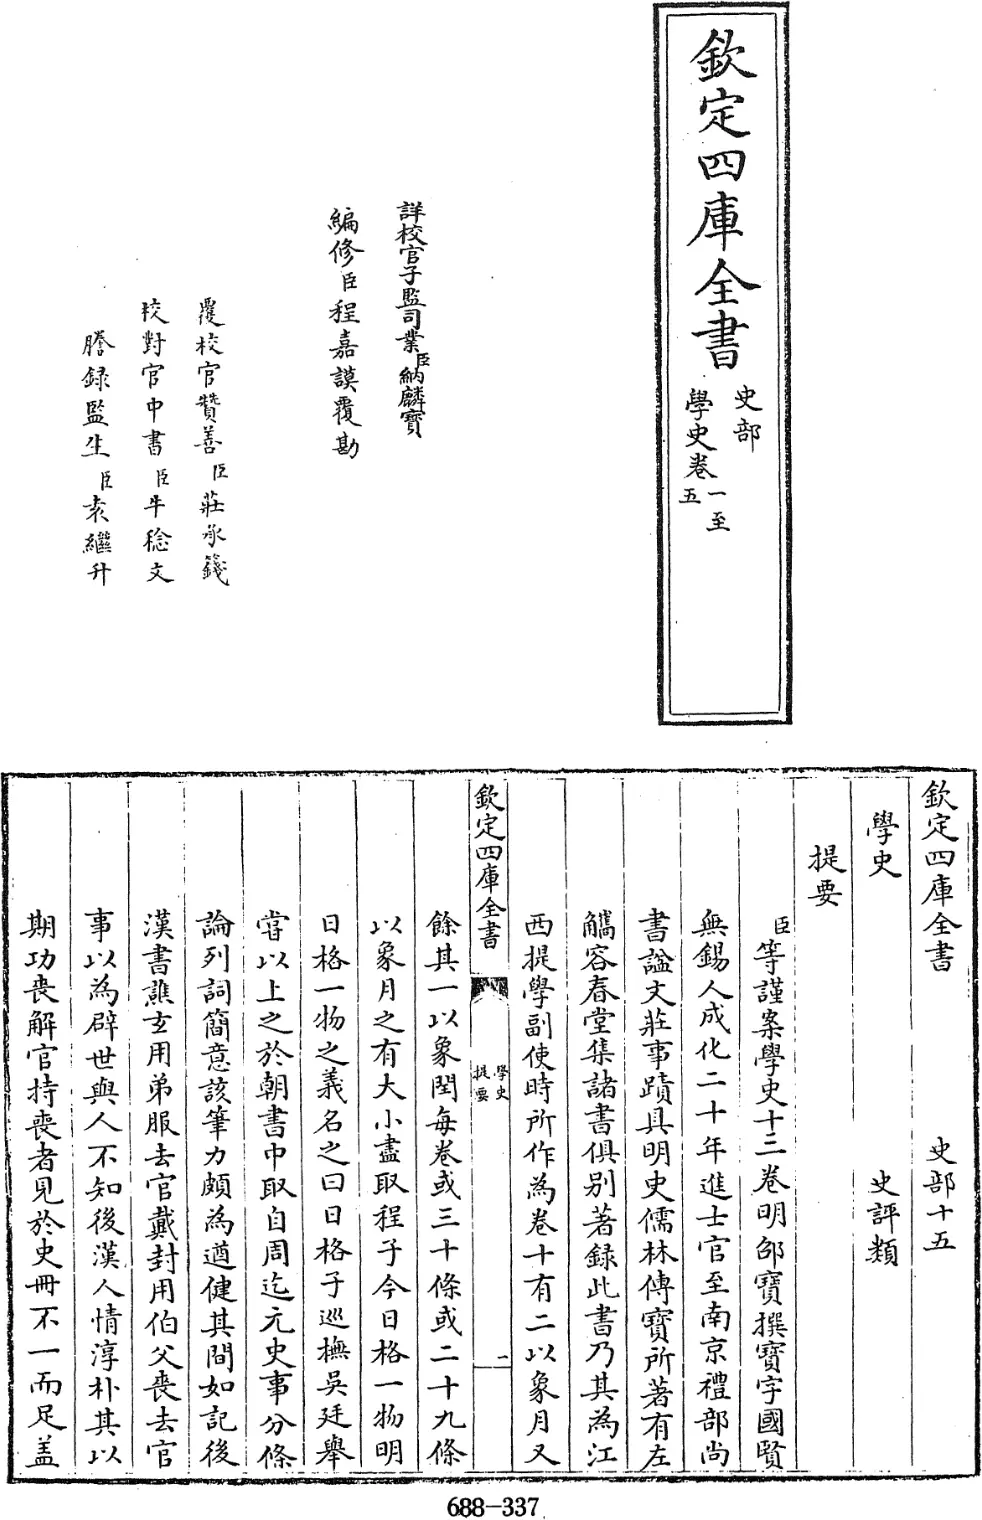 欽定四庫全書
史部
學史卷一至
五
詳校官子監司業臣納麟寶
編修臣程嘉謨覆勘
覆校官贊善臣莊承籛
校對官中書臣牛稔文
謄録監生臣袁繼升
欽定四庫全書 史部十五
學史 史評類
提要
臣等謹案學史十三卷明邵寶撰寶字國賢
無錫人成化二十年進士官至南京禮部尚
書諡文莊事蹟具明史儒林傳寶所著有左
觿容春堂集諸書俱别著録此書乃其為江
西提學副使時所作為卷十有二以象月又
欽定四庫全書 學史提要 一
餘其一以象閏每卷或三十條或二十九條
以象月之有大小盡取程子今日格一物明
日格一物之義名之曰日格子巡撫吳廷舉
嘗以上之於朝書中取自周迄元史事分條
論列詞簡意該筆力頗為遒健其間如記後
漢書譙玄用弟服去官戴封用伯父喪去官
事以為辟世與人不知後漢人情淳朴其以
期功喪解官持喪者見於史冊不一而足蓋
688-337